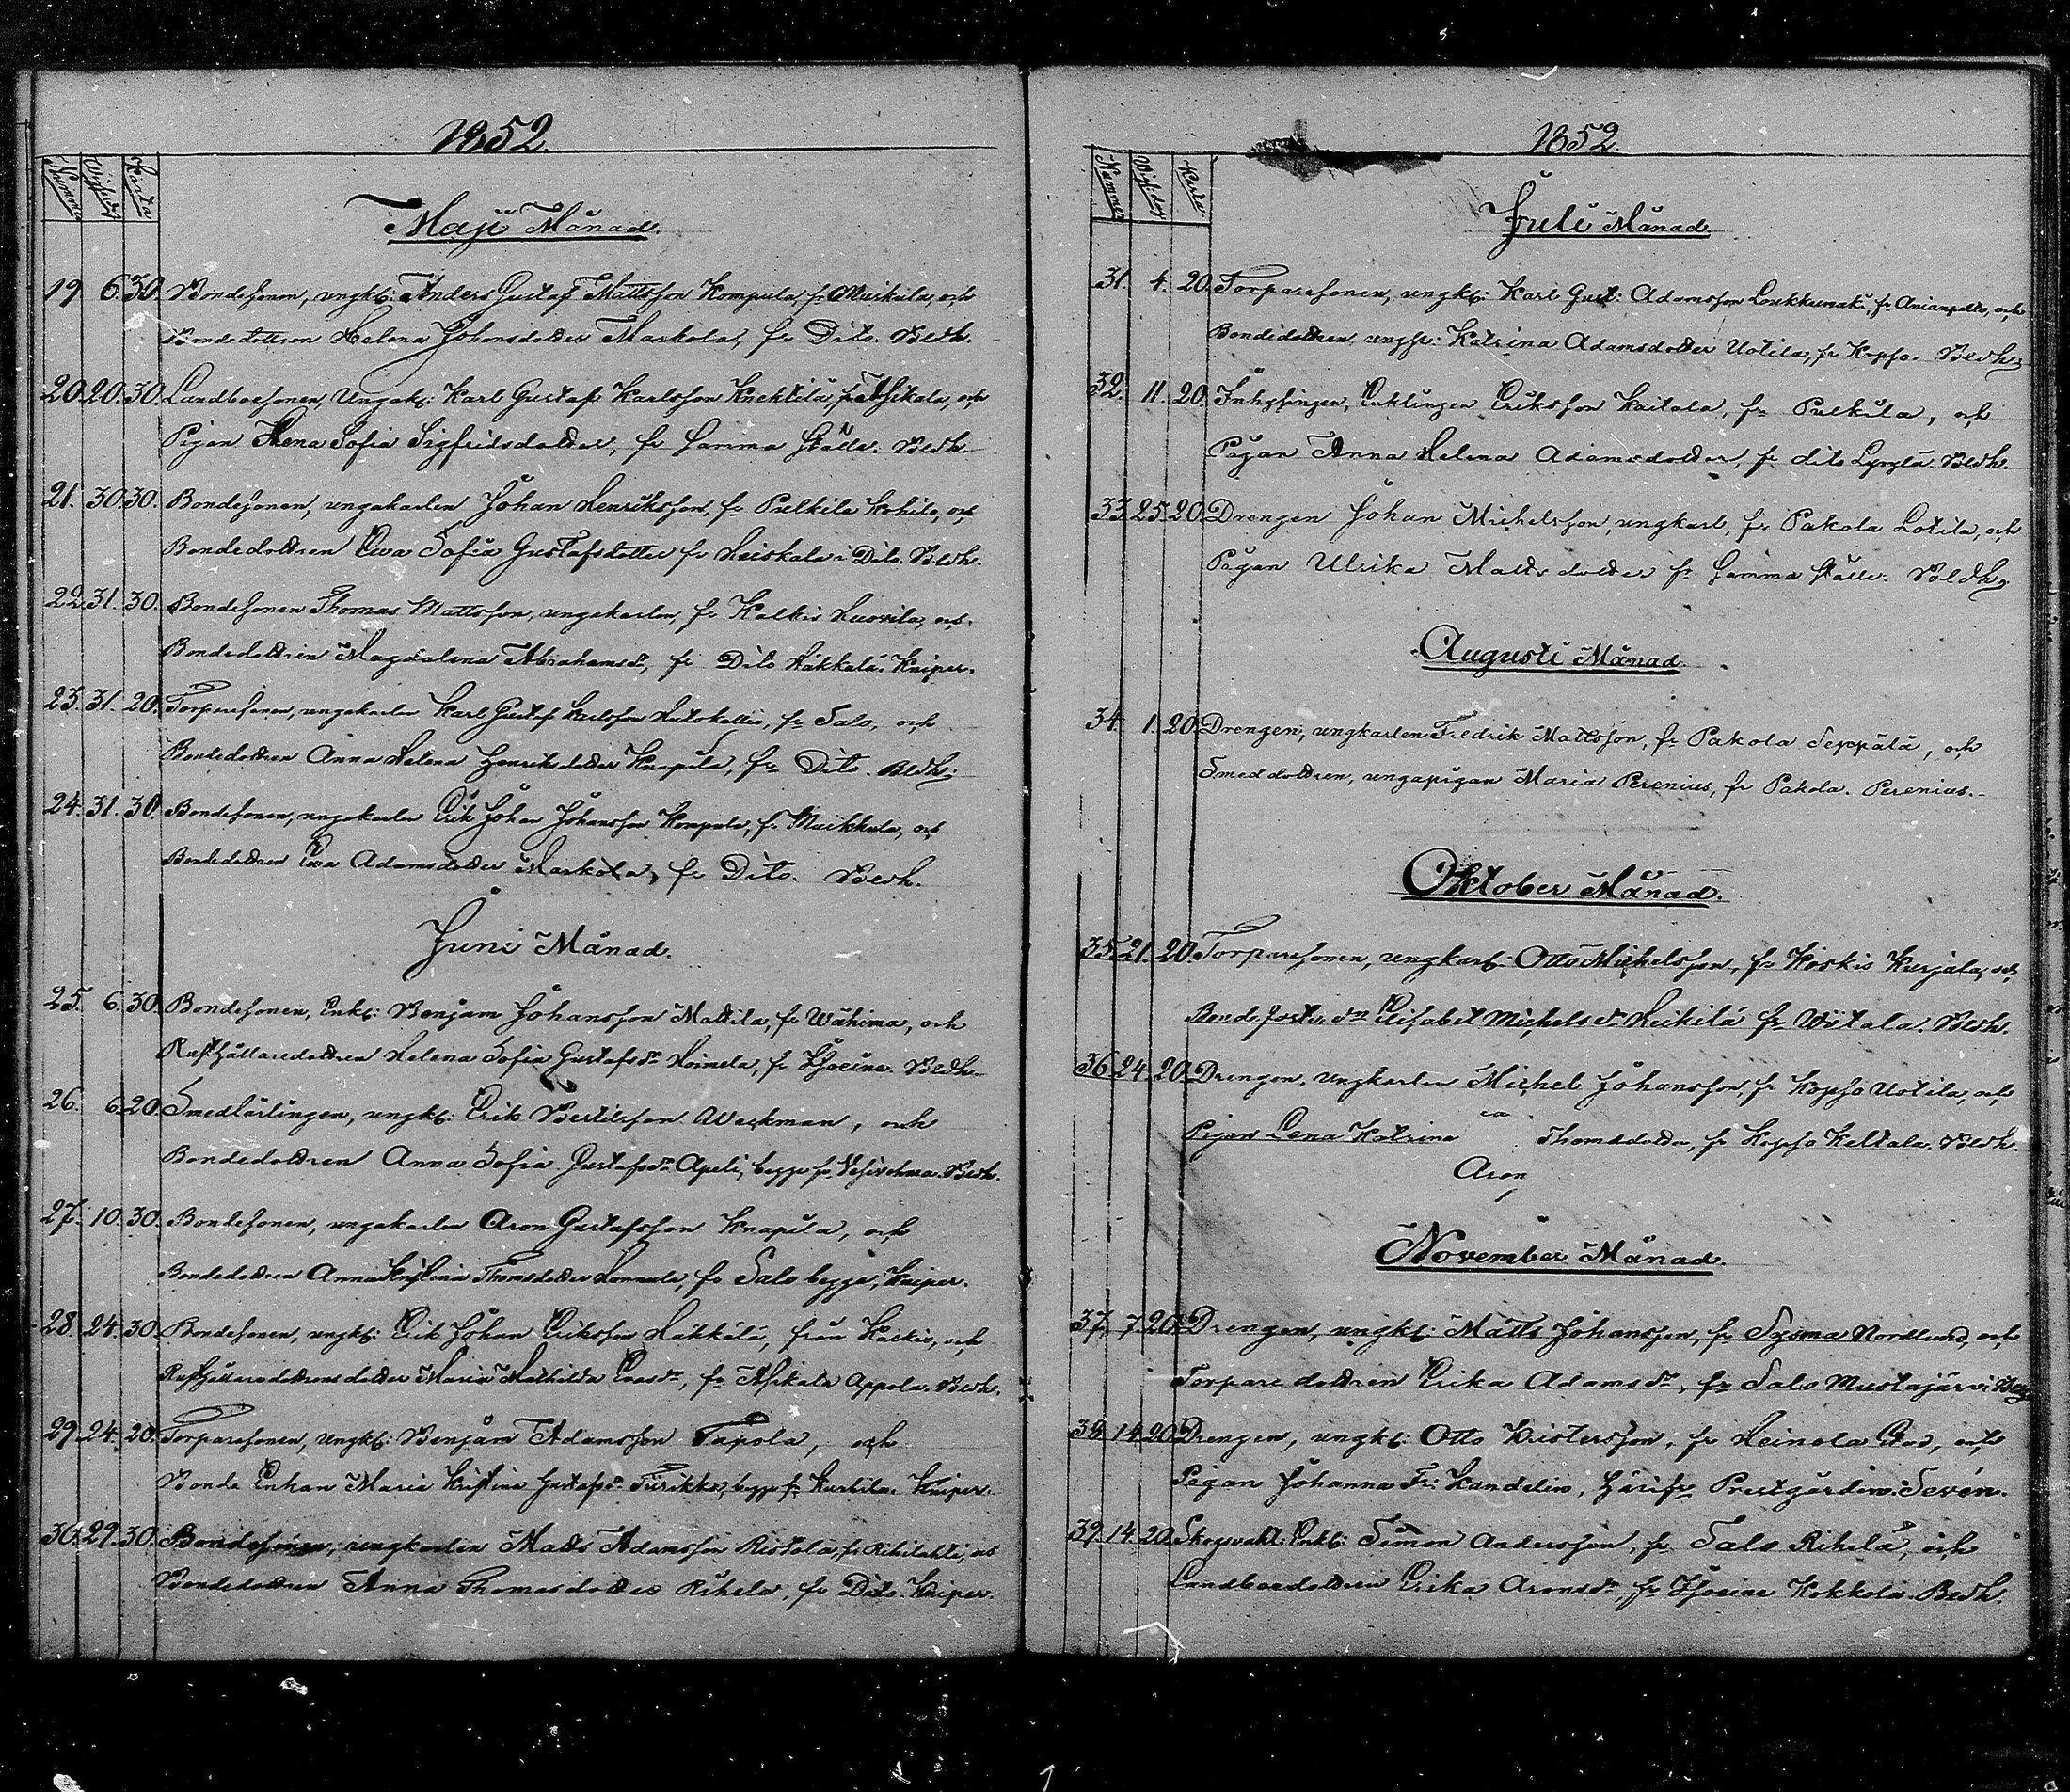 1852.
Nummer Vigselsdag Karta
Maji Månad.
19. 6. 30. Bondesonen, ungk: Anders Gustaf Mattsson Kompula, fr. Muikula, och
Bondedottren Helena Johansdotter Markola, fr Dito. Bedh.
20. 20. 30. Landboesonen, Ungk: Karl Gustaf Karlsson Knektilä, fr Asikala, och
Pigan Lena Sofia Sigfridsdotter, fr samma ställe. Bedh.
21. 30. 30. Bondesonen, ungakarlen Johan Henriksson, fr Pulkila Kohila, och
Bondedottren Ewa Sofia Gustafsdotter fr Heiskala i Dito. Bedh.
22. 31. 30. Bondesonen Thomas Mattsson, ungakarlen, fr Kalkis Huovila, och
Bondedottren Magdalena Abrahamsdr, fr Dito Häkkälä. Kniper.
23. 31. 20. Torparesonen, ungakarlen Karl Gustaf Karlsson Hutokallio, fr Salo, och
Bondedottren Anna Helena Henriksdotter Knapila, fr Dito. Bedh.
24. 31. 30. Bondesonen, ungakarlen Erik Johan Johansson Kompula, fr Muikkula, och
Bondedottren Ewa Adamsdotter Markola, fr Dito. Bedh.
Juni Månad.
25. 6. 30. Bondesonen, Enkl: Benjam Johansson Mattila, fr Wähima, och
Rusthållaredottren Helena Sofia Gustafsdr Hoimela, fr Ijoeine. Bedh.
26. 6. 20. Smedlärlingen, ungk: Erik Bertilsson Weckman, och
Bondedottren Anna Sofia Gustafsdr Apeli, begge fr Vesivehma. Bedh.
27. 10. 30. Bondesonen, ungakarlen Aron Gustafsson Knapila, och
Bondedottren Anna Kristina Thomsdotter, fr Salo begge. Kniper.
28. 24. 30. Bondesonen, ungk: Erik Johan Eriksson Häkkälä, från Kalkis, och
Rusthållaredottrens dotter Maria Mathilda Evasdr, fr Asikala Appola. Bedh.
29. 24. 20. Torparesonen, ungk: Benjam Adamsson Tapola, och
Bonde Enkan Maria Kristina Gustafsdr, begge fr Kurhila. Kniper.
30. 29. 30. Bondesonen, ungkarlen Matts Adamsson Ristola, fr Rihilahti, och
Bondedottren Anna Thomasdotter Rihela, fr Dito. Kniper.
1852.
Nummer Vigs.dag Karta
Juli Månad.
31. 4. 20. Torparesonen, ungk: Karl Gust: Adamsson Loukkumäki, fr Anianpelto, och
Bondedottren, ungpr: Katrina Adamsdotter Uotila, fr Kopso. Bedh.
32. 11. 20. Inhysingen, Enklingen Eriksson Kaitala, fr Pulkila, och
Pigan Anna Helena Adamsdotter, fr dito. Bedh.
33. 25. 20. Drengen Johan Michelsson, ungkarl, fr Pakola Lotila, och
Pigan Ulrika Mattsdotter fr samma ställe. Bedh.
Augusti Månad.
34. 1. 20. Drengen, ungkarlen Fredrik Mattsson, fr Pakola Seppälä, och
Smeddottren, ungapigan Maria Perenius, fr Pakola. Perenius.
Oktober Månad.
35. 21. 20. Torparesonen, ungkarl: Otto Michelsson, fr Koskis Kurjala, och
Bondefosterdn Elisabet Michelsdr Heikilä fr Wiitala. Bedh.
36. 24. 20. Drengen, ungkarlen Michel Johansson, fr Kopso Uotila, och
Pigan Lena Katrina Thomsdotter, fr Kopso Keltala. Bedh.
Aron
November Månad.
37. 7. 20. Drengen, ungk: Matts Johansson, fr Sysma Nordlund, och
Torparedottren Erika Adamsdr, fr Salo Mustajärvi
38. 14. 20. Drengen, ungk: Otto Kristersson, fr Heinola Stad, och
Pigan Johanna Fr: Kandelin, härifr Prestgården. Sevón.
39. 14. 20. Skogsvakt. Enkl: Simon Andersson, fr Salo Rihelä, och
Landboedottren Erika Aronsdr, fr Ijoeine Kokkola. Bedh.